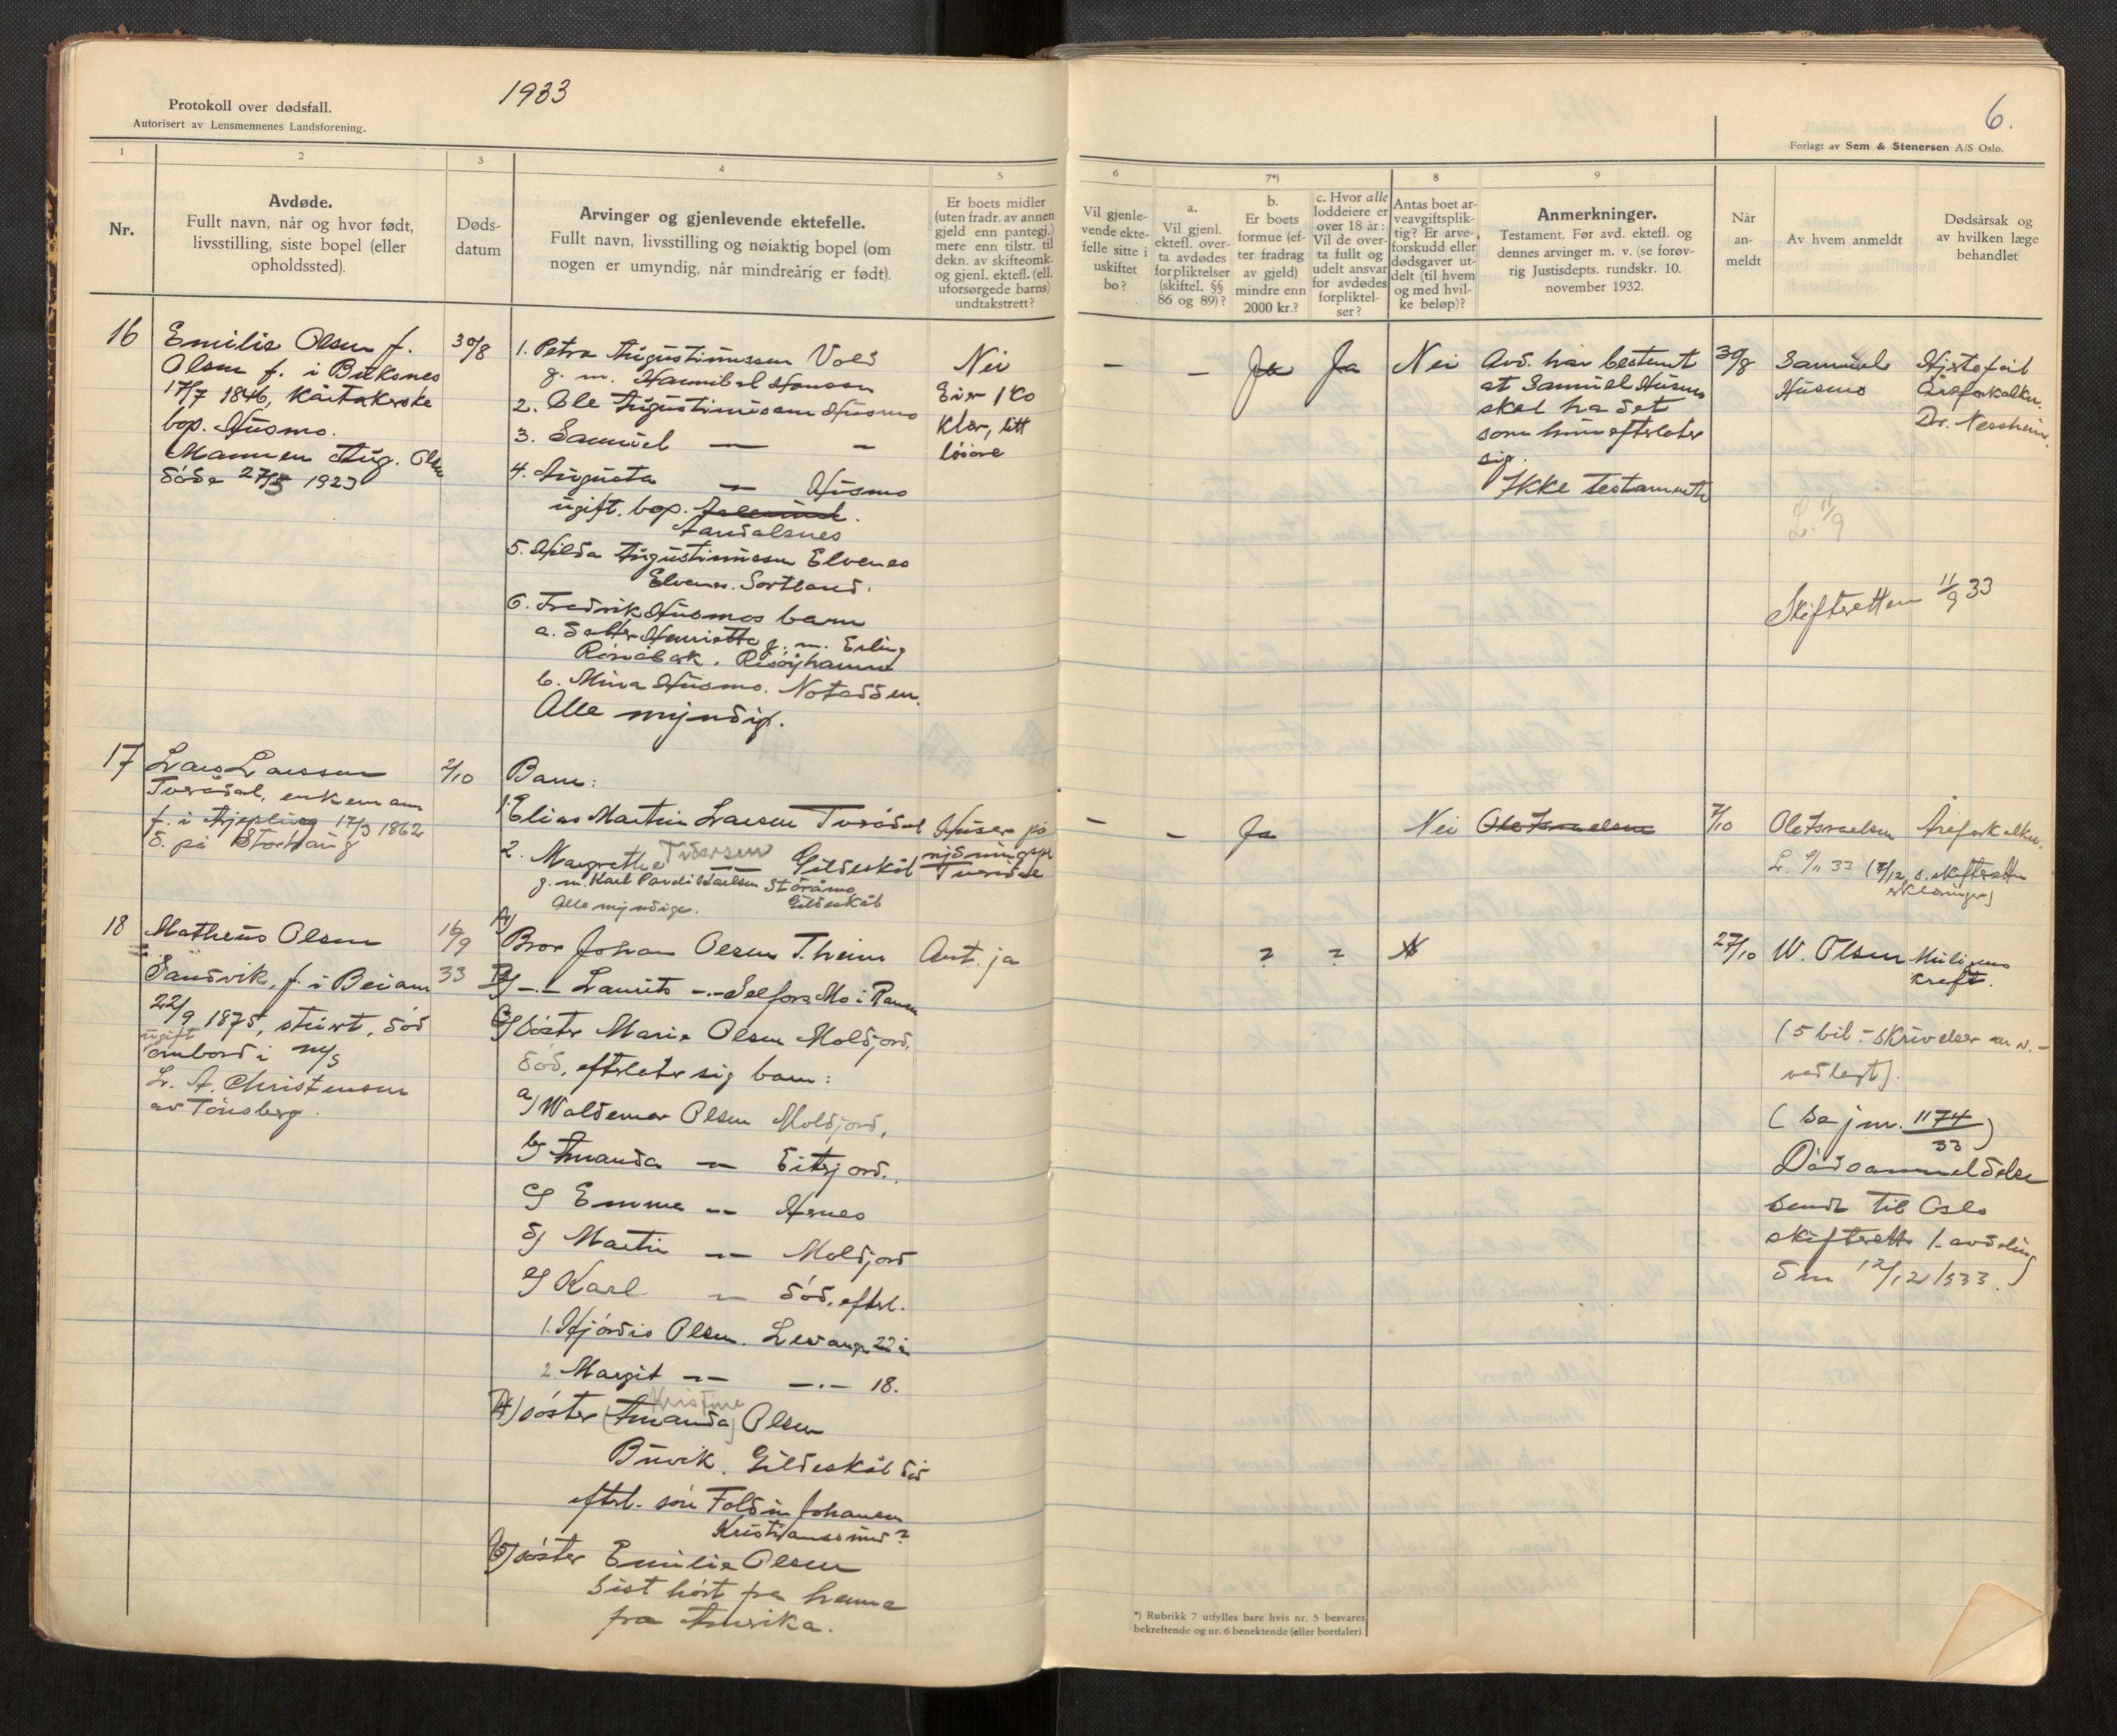 Protokoll over dødsfall.
Autorisert av Lensmennenes Landsforening.
1933
6.
Forlagt av Sem & Stenersen A/S Oslo.
1
2
3
4
5
6
7*)
8
9
Nr.
Avdøde.
Fullt navn, når og hvor født,
livsstilling, siste bopel (eller
opholdssted).
Døds-
datum
Arvinger og gjenlevende ektefelle.
Fullt navn, livsstilling og nøiaktig bopel (om
nogen er umyndig, når mindreårig er født).
Er boets midler
(uten fradr. av annen
gjeld enn pantegj.)
mere enn tilstr. til
dekn. av skifteomk.
og gjenl. ektef. (ell.
uforsørgede barns)
undtakstrett?
Vil gjenle-
vende ekte-
felle sitte i
uskiftet
bo?
a.
Vil gjenl.
ektefl. over-
ta avdødes
forpliktelser
(skiftel. §§
86 og 89)?
b.
Er boets
formue (ef-
ter fradrag
av gjeld)
mindre enn
2000 kr.?
c. Hvor alle
loddeiere er
over 18 år:
Vil de over-
ta fullt og
udelt ansvar
for avdødes
forpliktel-
ser?
Antas boet ar-
veavgiftsplik-
tig? Er arve-
forskudd eller
dødsgaver ut-
delt (til hvem
og med hvil-
ke beløp)?
Anmerkninger.
Testament. Før avd. ektefl. og
dennes arvinger m. v. (se forøv-
rig Justisdepts. rundskr. 10.
november 1932.
Når
an-
meldt
Av hvem anmeldt
Dødsårsak og
av hvilken læge
behandlet
16
Emilie Olsen f.
Olsen f. i Buksnes
17/7 1846, kårtakerske
bop. Husmo.
Mannen Aug. Olsen
døde 27/5 1923
30/8
1. Petra Augustinussen Vold
g. m. Hannibal Hansen
2. Ole Augustinussen Husmo
3. Samuel — -
4. Augusta — Husmo
ugift. bop.
Aandalsnes
5. Hilda Augustinussen Elvenes
Elvenes. Sortland.
6. Fredrik Husmos barn
a. datter Henriette g. m. Erling
Risøyhamn
b. Mina Husmo. Notodden.
Alle myndig.
Nei
Eier 1 ko
klær, litt
løsøre
-
-
Ja
Ja
Nei
Avd. har bestemt
at Samuel Husmo
skal ha det
som hun efterlater
sig.
Ikke testamente
30/8
Samuel
Husmo
Hjertefeil
Åreforkalkn.
Dr. Nessheim.
L. 11/9
Skifteretten 11/9 33
17
Lars Larssen
Tverådal, enkemann
f. i Arjeplueg 17/3 1862
d. på Storhaug
2/10
Barn:
1. Elias Martin Larsen Tverådal
2. Margrethe Pedersen — Gildeskål
g. m. Karl Karlsen Storåmo
Alle myndige. Gildeskål
Huser på
rydningspl.
Tverådal
-
-
Ja
Nei
Ole Israelsen
7/10
Ole Israelsen
Åreforkalkn.
L. 4/11 33 (7/12 s. skifteretten
erklæringer)
18
Matheus Olsen
Sandvik, f. i Beiarn
22/9 1875, stuert, død
ugift
ombord i M/S
L. A. Christensen
av Tønsberg.
16/9
33
A) Bror Johan Olsen Theim
B) -.- Laurits -.- Selfors Mo i Rana
C) søster Marie Olsen Moldjord,
død, efterlater sig barn:
a) Waldemar Olsen Moldjord,
b) Amanda — Eiterjord.
c) Emma — Arnes
d) Martin — Moldjord
e) Karl — død, efterl.
1. Hjørdis Olsen. Levanger 22 år
2. Margit — -.- 18.
4) søster (Amanda) Kristine Olsen
Buvik. Gildeskål død
efterl. søn Foldin Johansen
Kristiansund?
5) søster Emilie Olsen
Sist hørt fra henne
fra Amerika.
Ant. ja
?
?
N
27/10
W. Olsen
Muligens
kreft.
(5 bil. - skrivelser m.v. -
vedlagt).
(Se j nr. 1174/33)
Dødsanmeldelse
sendt til Oslo
skifterett 1. avdeling
den 12/12 1933.)
*) Rubrikk 7 utfylles bare hvis nr. 5 besvares
bekreftende og nr. 6 benektende (eller bortfaler).